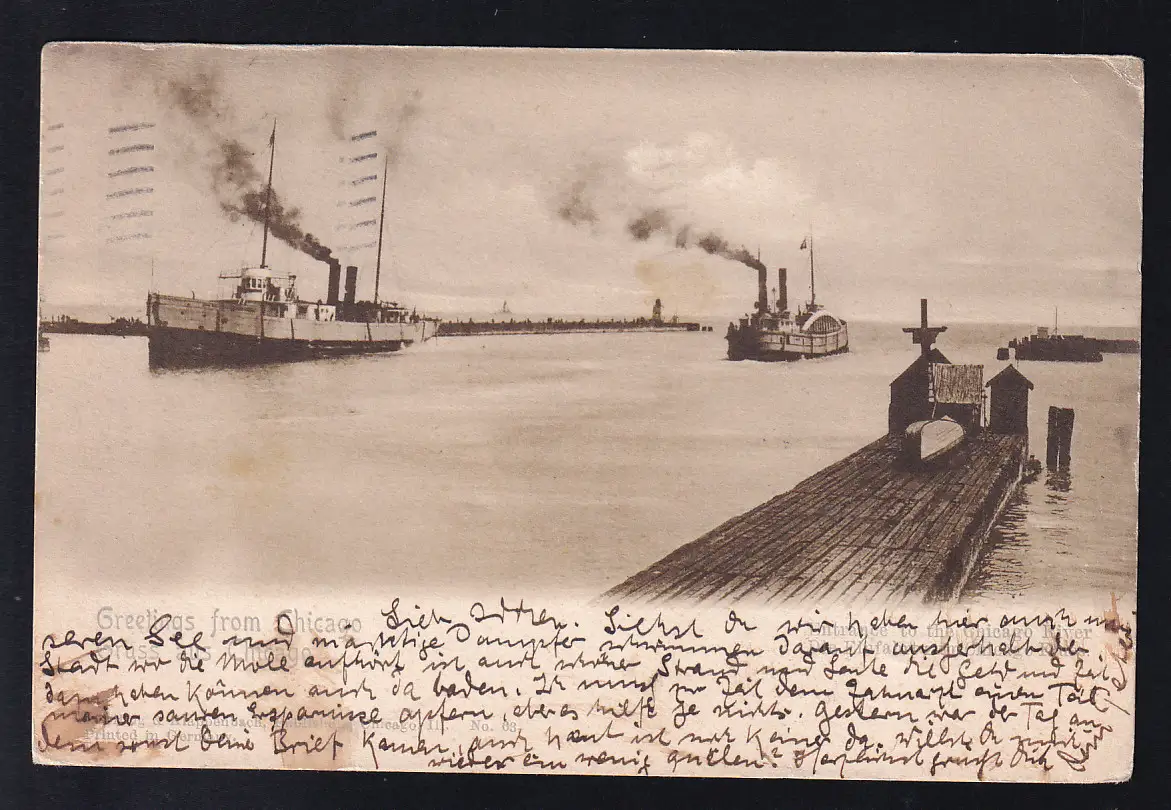 Greetings from Chicago
Entrance to the Chicago River
Lieb Siehst Du wir haben hier auch un
seren See und mächtige Dampfer schwimmen darauf, ausserhalb der
Stadt wo die Mole aufhört ist auch schöner Strand und Leute die Geld und Zeit
dazu haben können auch da baden. Ich muss zur Zeit dem Zahnarzt einen Teil
meiner sauren Ersparnisse opfern, aber es hilft je nichts. Gestern war der Tag an
dem sonst Deine Brief kamen, auch heut ist noch keiner da. Willst Du mich
wieder ein wenig quälen? Herzlichst grüsst Dich
No. 63.
Printed in Germany.